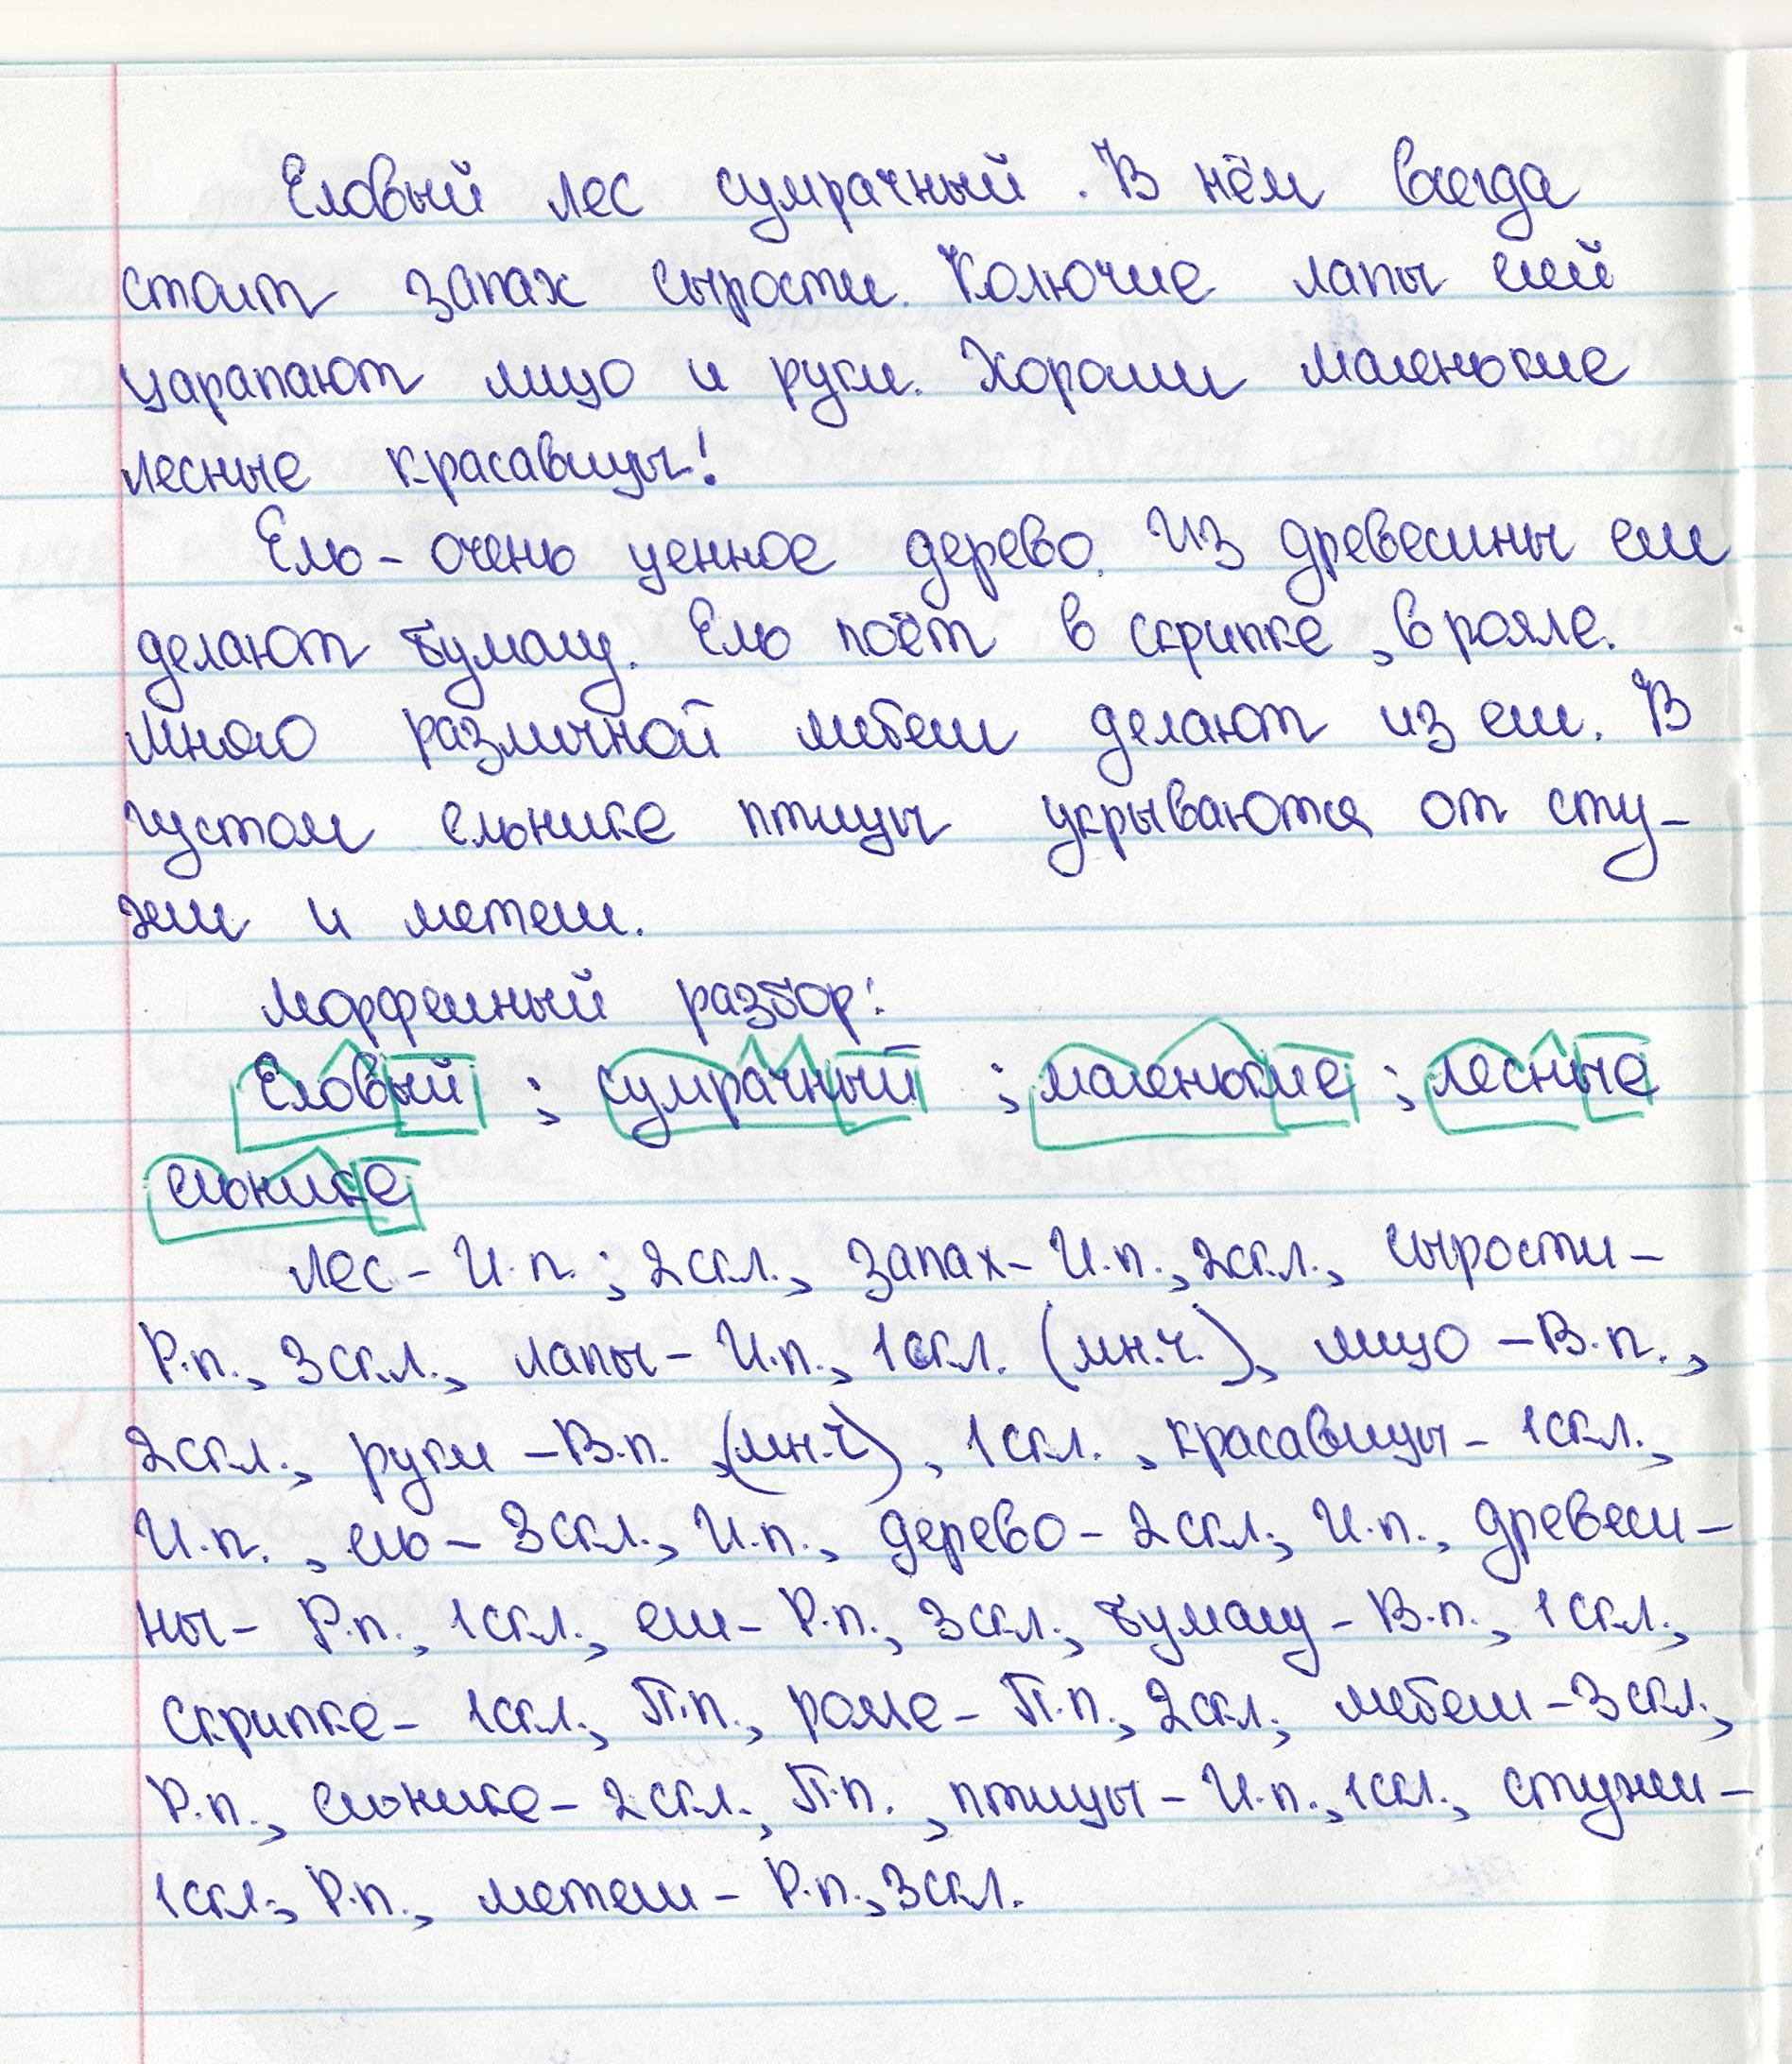 Еловый лес сумрачный. В нём всегда
стоит запах сырости. Колючие лапы елей
царапают лицо и руки. Хороши маленькие
лесные красавицы!
Ель - очень ценное дерево. Из древесины ели
делают бумагу. Ель поёт в скрипке, в рояле.
Много различной мебели делают из ели. В
густом ельнике птицы укрываются от сту-
жи и метели.
Морфемный разбор:
Еловый ; сумрачный ; маленькие ; лесные
ельнике
Лес - И.п.; 2скл., запах - И.п., 2скл., сырости -
Р.п., 3скл., лапы - И.п., 1скл. (мн.ч.), лицо - В.п.,
2скл., руки - В.п. ,(мн.ч), 1скл. , красавицы - 1скл.,
И.п. , ель - 3скл., И.п., дерево - 2скл., И.п., древеси-
ны - Р.п., 1скл., ели - Р.п., 3скл., бумагу - В.п., 1скл.,
скрипке - 1скл., П.п., рояле - П.п., 2скл., мебели - 3скл.,
Р.п., ельнике - 2скл., П.п. , птицы - И.п., 1скл., стужи -
1скл., Р.п., метели - Р.п., 3скл.